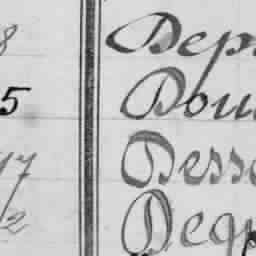 8 Dep
5 Dou
17 Dess
12 Deg